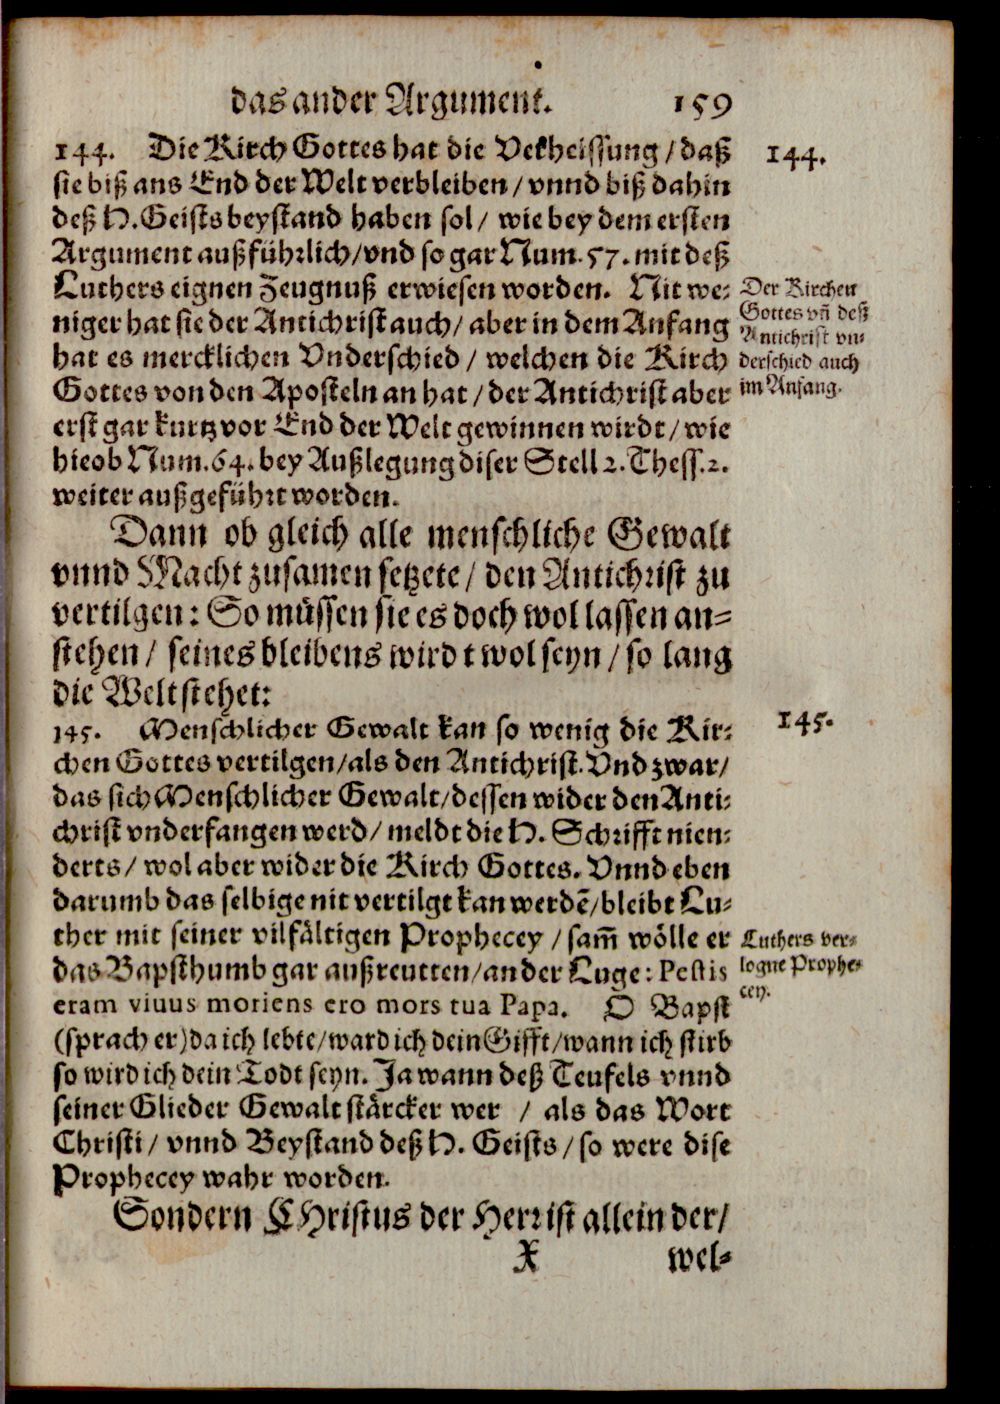 das ander Argument. 159
144. Die Kirch Gottes hat die Verheissung / daß
144.
sie biß ans End der Welt verbleiben / vnnd biß dahin
deß H. Geists beystand haben sol / wie bey dem ersten
Argument außführlich / vnd so gar Num. 57. mit deß
Luthers eignen Zeugnuß erwiesen worden. Nit we-
niger hat sie der Antichrist auch / aber in dem Anfang
hat es mercklichen Vnderschied / welchen die Kirch
Gottes von den Aposteln an hat / der Antichrist aber
erst gar kurtz vor End der Welt gewinnen wirdt / wie
hieob Num. 64. bey Außlegung diser Stell 2. Thess. 2.
weiter außgeführt worden.
Der Kirchen
Gottes vn̄ deß
Antichrist vn-
derschied auch
im Anfang.
Dann ob gleich alle menschliche Gewalt
vnnd Macht zusamen setzete / den Antichrist zu
vertilgen: So müssen sie es doch wol lassen an-
stehen / seines bleibens wirdt wol seyn / so lang
die Welt stehet:
145. Menschlicher Gewalt kan so wenig die Kir-
145.
chen Gottes vertilgen / als den Antichrist. Vnd zwar /
das sich Menschlicher Gewalt / dessen wider den Anti-
christ vnderfangen werd / meldt die H. Schrifft nien-
derts / wol aber wider die Kirch Gottes. Vnnd eben
darumb das selbige nit vertilgt kan werdē / bleibt Lu-
ther mit seiner vilfältigen Prophecey / sam̄ wölle er
das Bapsthumb gar außreutten / an der Luge: Pestis
eram viuus moriens ero mors tua Papa. O Bapst
(sprach er) da ich lebte / ward ich dein Gifft / wann ich stirb
so wird ich dein Todt seyn. Ja wann deß Teufels vnnd
seiner Glieder Gewalt stärcker wer / als das Wort
Christi / vnnd Beystand deß H. Geists / so were dise
Prophecey wahr worden.
Luthers ver-
logne Prophe-
cey.
Sondern CHristus der Herr ist allein der /
X wel-